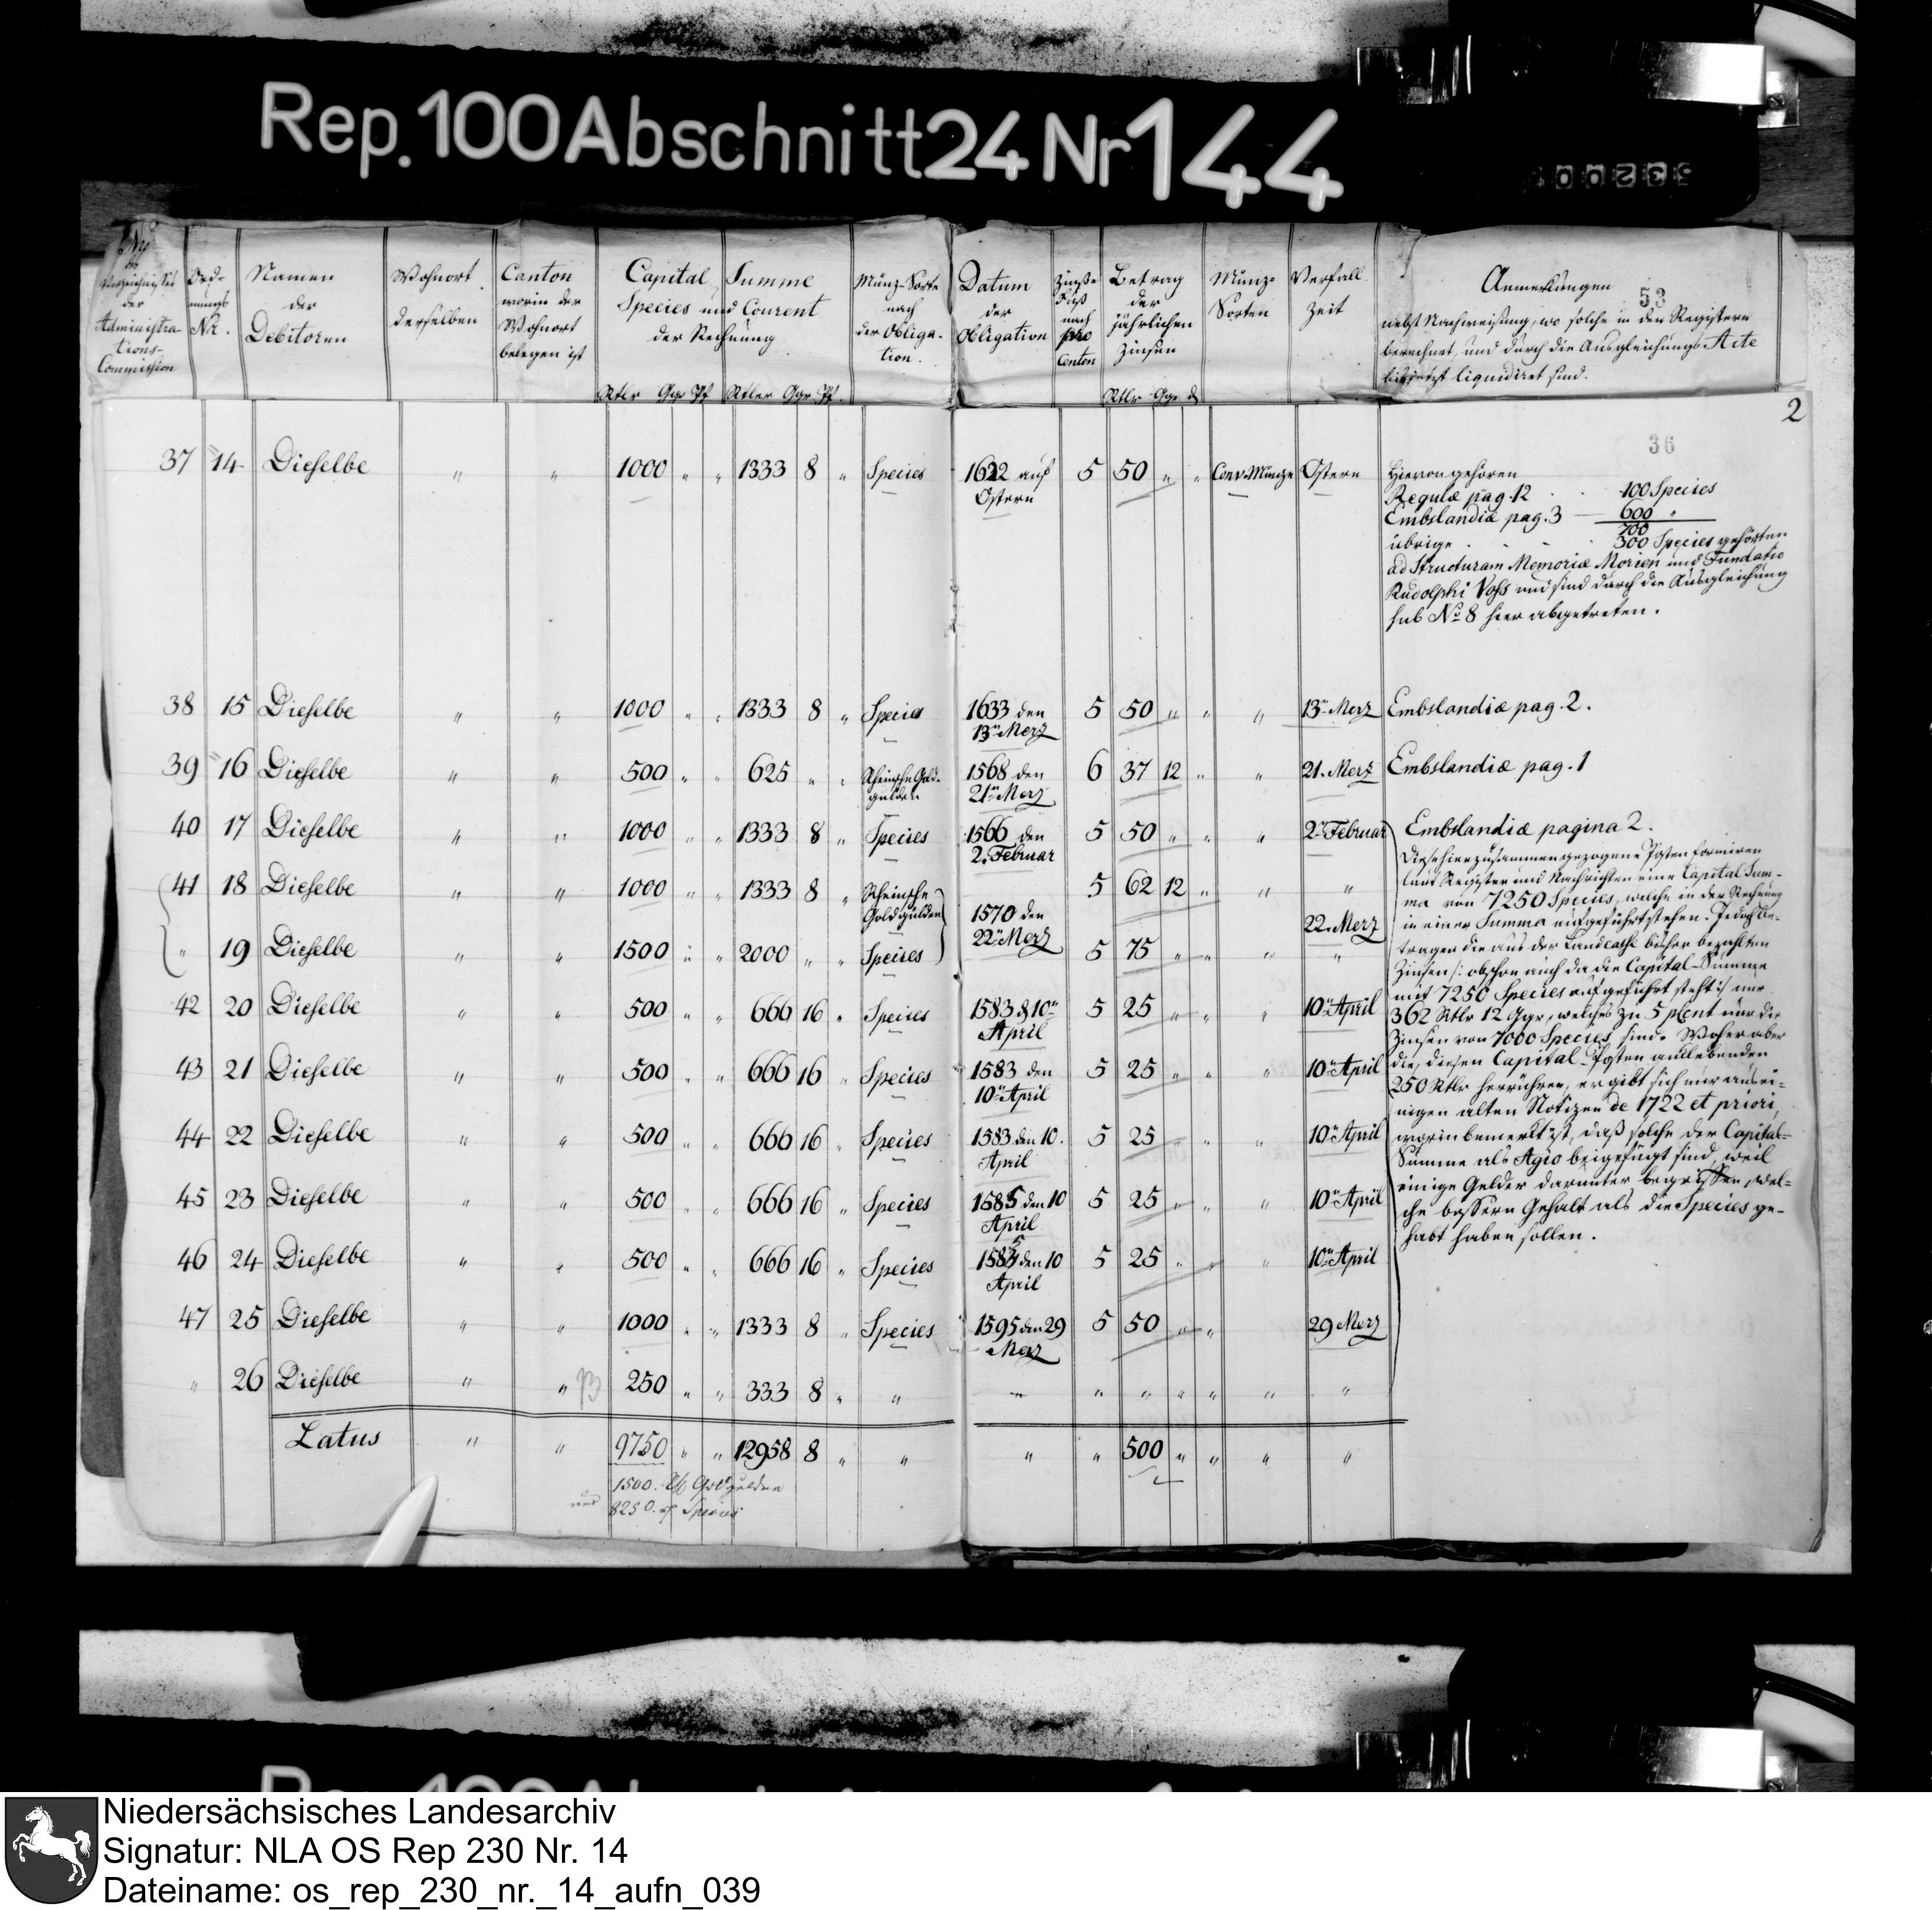 Rep. 100 Abschnitt 24 Nr 144
53
Nro
des
Verzeichnisses
der
Administra-
tions-
Commission
Ord-
nungs
Nr.
Namen
der
Debitoren
Wohnort
derselben
Canton
worin der
Wohnort
belegen ist
Capital Summe
Species und Courent
der Rechnung
Rtlr Ggr Pf Rtler Ggr Pf.
Münz-Sorte
nach
der Obliga-
tion.
Datum
der
Obligation
Zinße-
Fuß
nach
pro
Centen
Betrag
der
jährlichen
Zinsen
Rtlr Ggr d
Münz-
Sorten
Verfall
Zeit
Anmerkungen
nebst Nachweisung, wo solche in den Registern
berechnet, und durch die Ausgleichungs Acte
liquidiret sind.
2
36
37 14 Dieselbe " " 1000 " " 1333 8 " Species 1622 auf Ostern 5 50 " " Conv. Münze Ostern
Hievon gehören
Regulæ pag. 12 . . 400 Species
Embslandiæ pag. 3 — 600 "
700
übrige . - - 300 Species gehörten
ad Structuram Memoriæ Morien und Fundatio
Rudolphi Voss und sind durch die Ausgleichung
sub No 8 hier abgetreten.
38 15 Dieselbe " " 1000 " " 1333 8 " Species 1633 den 13n Merz 5 50 " " " 13n Merz Embslandiæ pag. 2.
39 16 Dieselbe " " 500 " " 625 " " Rheinsche Gold-gulden 1568 den 21n Merz 6 37 12 " " 21. Merz Embslandiæ pag. 1
40 17 Dieselbe " " 1000 " " 1333 8 " Species 1566 den 2. Februar 5 50 " " " 2n Februar Embslandiæ pagina 2.
41 18 Dieselbe " " 1000 " " 1333 8 " Rheinsche Goldgulden 1570 den 22n Merz 5 62 12 " " " 22. Merz
" 19 Dieselbe " " 1500 " " 2000 " " Species 5 75 " " " "
42 20 Dieselbe " " 500 " " 666 16 " Species 1583 d 10n April 5 25 " " " 10n April
43 21 Dieselbe " " 500 " " 666 16 " Species 1583 den 10n April 5 25 " " " 10n April
44 22 Dieselbe " " 500 " " 666 16 " Species 1583 den 10. April 5 25 " " " 10n April
45 23 Dieselbe " " 500 " " 666 16 " Species 1585 den 10 April 5 25 " " " 10n April
46 24 Dieselbe " " 500 " " 666 16 " Species 1585 den 10 April 5 25 " " " 10n April
47 25 Dieselbe " " 1000 " " 1333 8 " Species 1595 den 29 Merz 5 50 " " 29 Merz
" 26 Dieselbe " " 250 " " 333 8 " " " " " " " " "
Latus " " 9750 " " 12958 8 " " " " 500 " " " "
1500. Goldgulden
und 8250. Species
Diese hier zusammengezogene Posten formiren
laut Register und Nachrichten eine Capital Sum-
ma von 7250 Species, welche in der Rechnung
in einer Summa aufgeführt stehen. Jedoch be-
tragen die aus der Landcasse bisher bezahlten
Zinsen /: obschon auch da die Capital-Summe
mit 7250 Species aufgeführt steht :/ nur
362 Rtlr 12 Ggr, welches zu 5 pCent nur die
Zinsen von 7000 Species sind. Woher aber
die, diesen Capital-Posten anklebenden
250 Rtlr herrühren, ergibt sich nur aus ei-
nigen alten Notizen de 1722 et priori,
worin bemerkt ist, daß solche der Capital-
Summe als Agio beigefügt sind, weil
einige Gelder darunter begriffen, wel-
che bessern Gehalt als die Species ge-
habt haben sollen.
Niedersächsisches Landesarchiv
Signatur: NLA OS Rep 230 Nr. 14
Dateiname: os_rep_230_nr._14_aufn_039